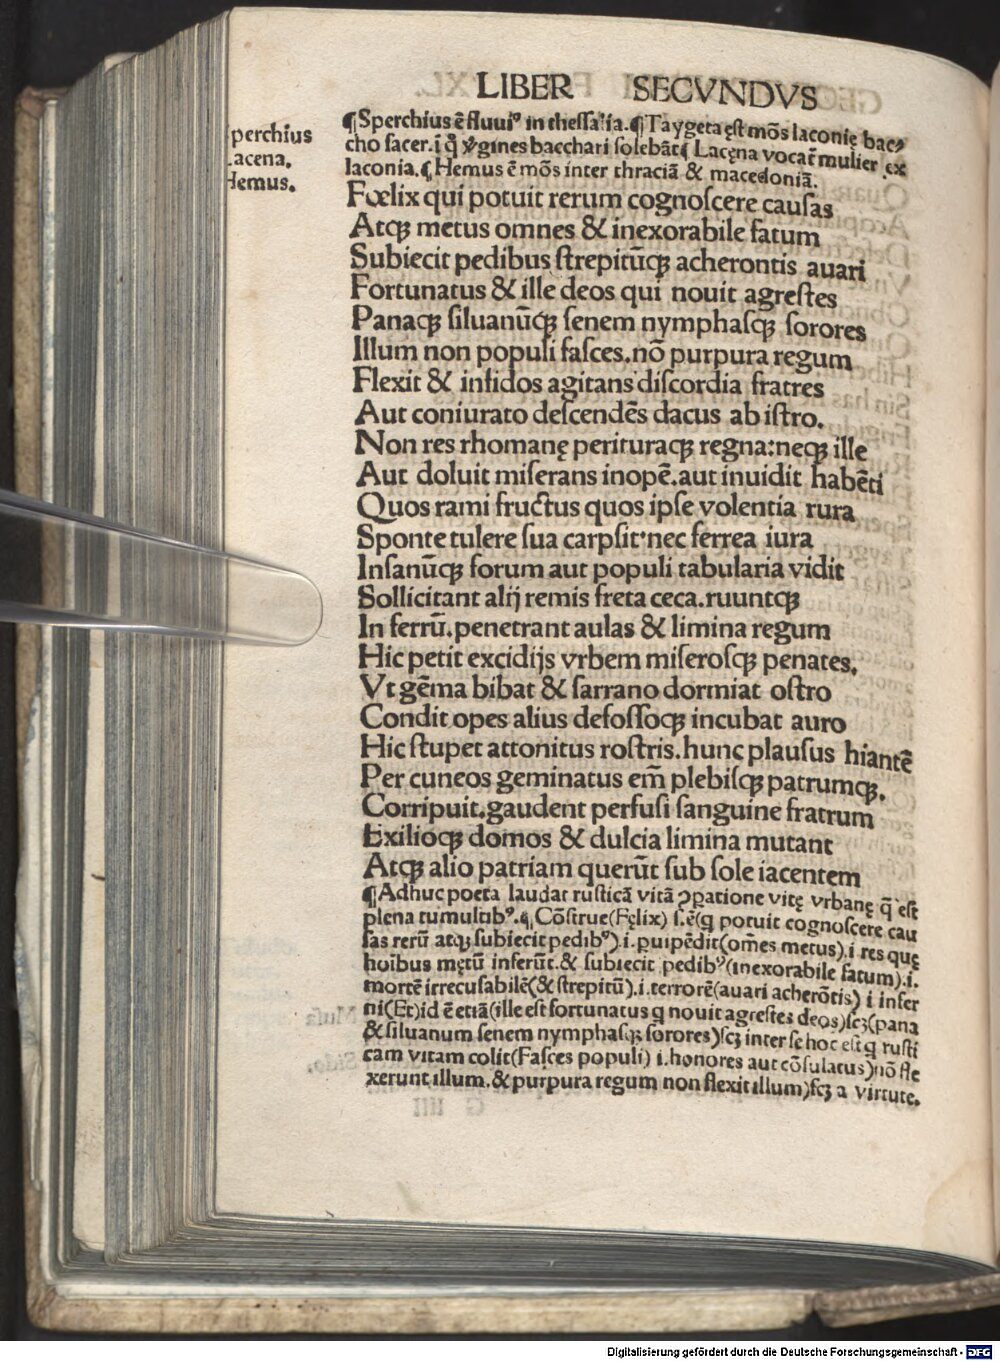 LIBER SECVNDVS
perchius
Lacena.
Hemus.
¶Sperchius ē fluuiꝰ in thessalia.¶Taygeta ęst mōs laconię bac
cho sacer.ī q̄ v̓gines bacchari solebāt¶ Lacęna vocat̄ mulier ex
laconia.¶Hemus ē mōs inter thraciā & macedoniā.
Fœlix qui potuit rerum cognoſcere cauſas
Atqꝫ metus omnes & inexorabile fatum
Subiecit pedibus ſtrepitūqꝫ acherontis auari
Fortunatus & ille deos qui nouit agreſtes
Panaqꝫ ſiluanūqꝫ ſenem nymphaſqꝫ ſorores
Illum non populi faſces.nō purpura regum
Flexit & infidos agitans diſcordia fratres
Aut coniurato deſcendēs dacus ab iſtro.
Non res rhomanę perituraqꝫ regna:neqꝫ ille
Aut doluit miſerans inopē.aut inuidit habēti
Quos rami fructus quos ipſe volentia rura
Sponte tulere ſua carpſit·nec ferrea iura
Inſanūqꝫ forum aut populi tabularia vidit
Sollicitant alij remis freta ceca.ruuntqꝫ
In ferrū.penetrant aulas & limina regum
Hic petit excidijs vrbem miſeroſqꝫ penates.
Vt gēma bibat & ſarrano dormiat oſtro
Condit opes alius defoſſoqꝫ incubat auro
Hic ſtupet attonitus roſtris.hunc plauſus hiantē
Per cuneos geminatus em̄ plebiſqꝫ patrumqꝫ.
Corripuit.gaudent perfuſi ſanguine fratrum
Exilioqꝫ domos & dulcia limina mutant
Atqꝫ alio patriam querūt ſub ſole iacentem
¶Adhuc poeta laudat ruſticā vitā ꝯparatione vitę vrbanę q̄ eſt
plena tumultibꝰ.¶ Cōſtrue(Fęlix) ſ.ē(q potuit cognoſcere cau
ſas rerū atqꝫ ſubiecit pedibꝰ).i.ꝯuipēdit(om̄es metus).i res quę
hoibus mętū inferūt.& ſubiecit pedibꝰ(inexorabile fatum).i.
mortē irrecuſabilē(& ſtrepitū).i.terrorē(auari acherōtis) i infer
ni(Et)id ē etiā(ille eſt fortunatus q nouit agreſtes deos)ſcꝫ(pana
& ſiluanum ſenem nymphaſqꝫ ſorores)ſcꝫ inter ſe hoc eſt q ruſti
cam vitam colit(Faſces populi) i.honores aut cōſulatus)nō fle
xerunt illum.& purpura regum non flexit illum)ſcꝫ a virtute.
Digitalisierung gefördert durch die Deutsche Forschungsgemeinschaft - DFG